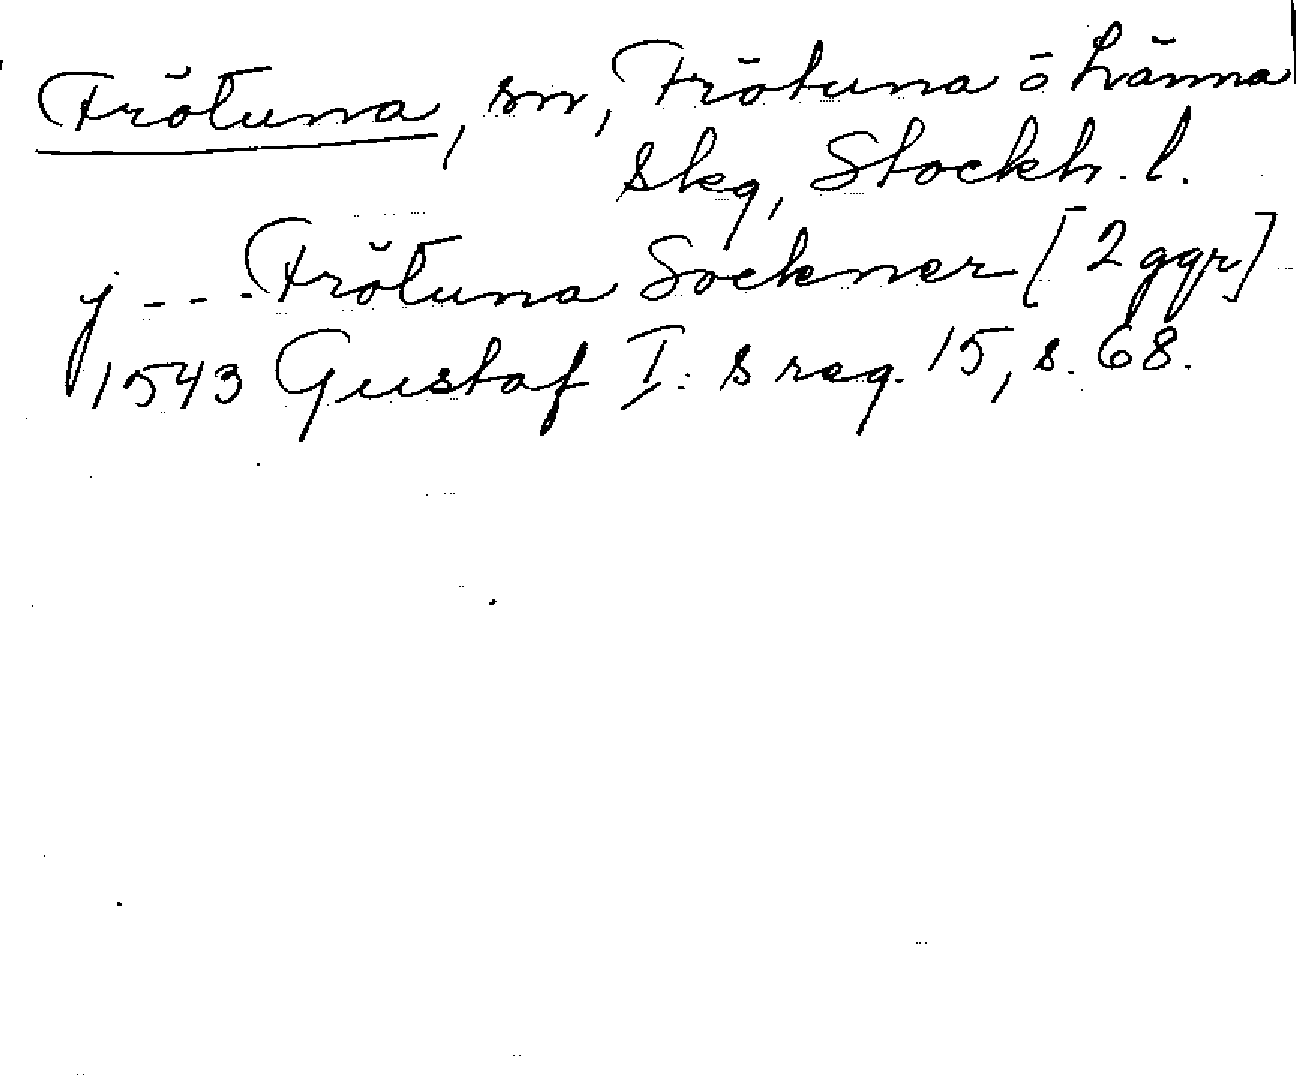 Frötuna, sn, Frötuna o Länna
skg, Stockh. l.
j --- Frötuna Sockner [2 ggr]
1543 Gustaf I:s reg. 15, s. 68.